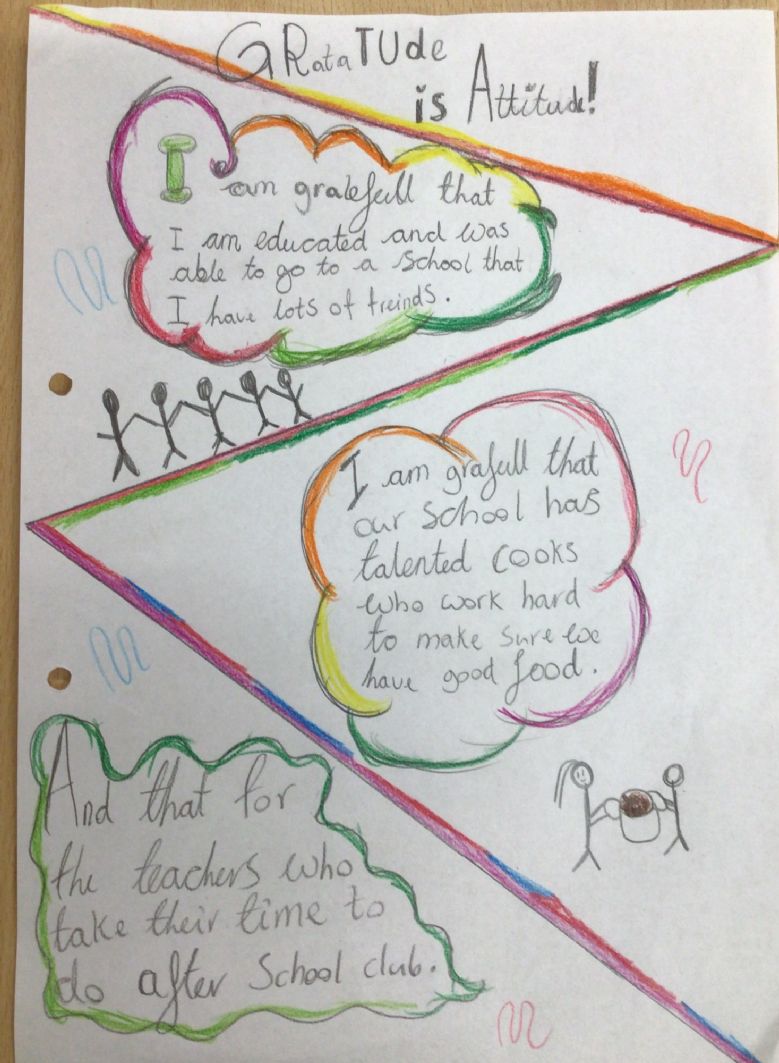 GRataTUde
is Attitude!
I am gratefull that
I am educated and was
able to go to a School that
I have lots of freinds.
I am grafull that
our School has
talented cooks
who work hard
to make sure we
have good food.
And that for
the teachers who
take their time to
do after School club.